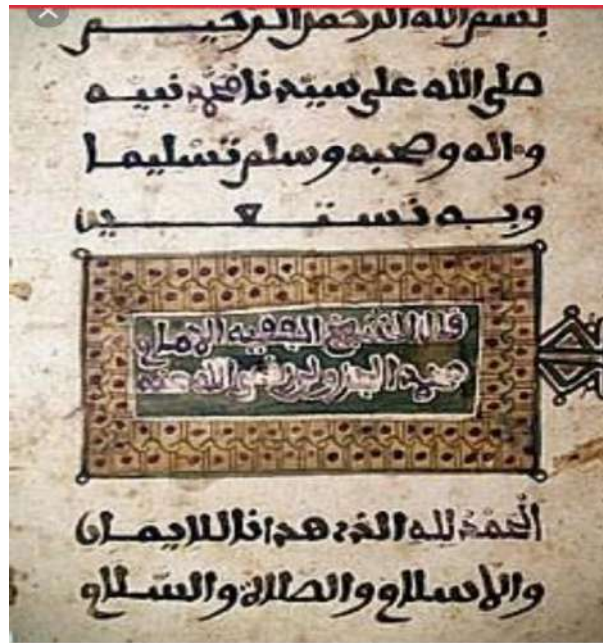 بسم الله الرحمن الرحيم
صلى الله على سيدنا محمد نبيه
وءاله وصحبه وسلم تسليما
وبه نستعين
قال الشيخ الفقيه الامام
محمد الجزولي رضي الله عنه
الحمد لله الذي هدانا للايمان
والاسلام والصلاة والسلام